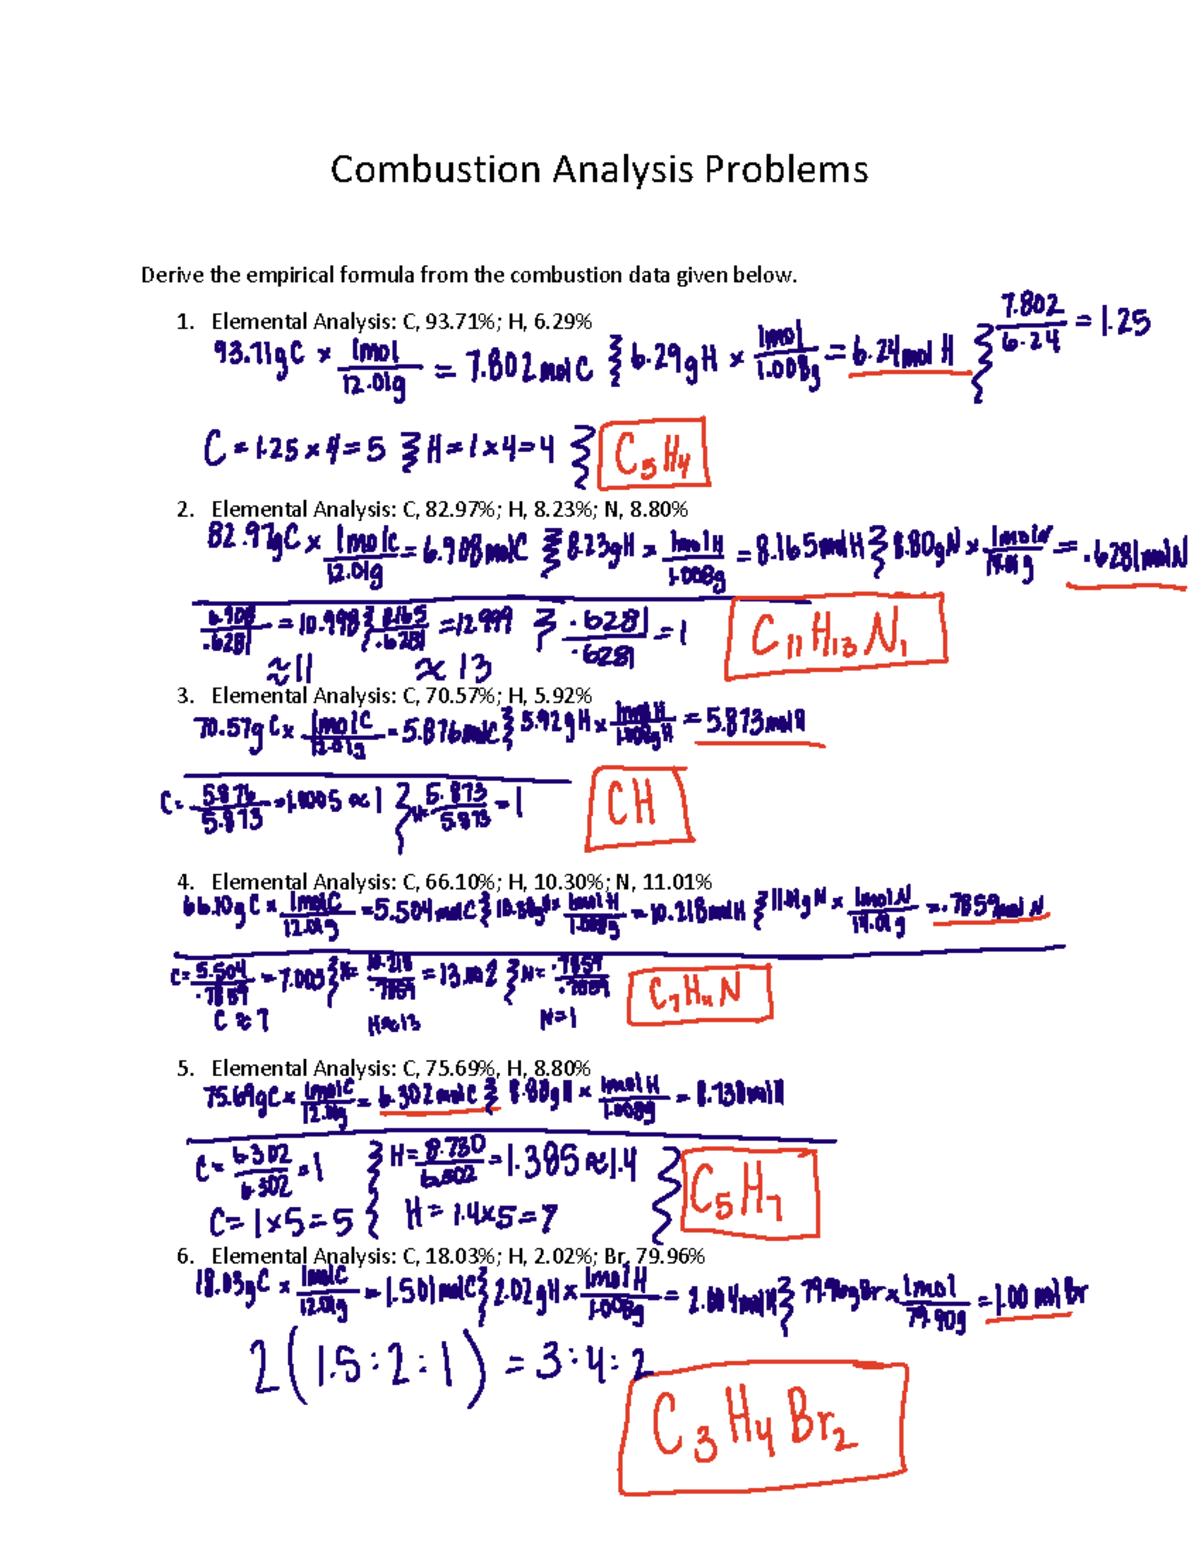 Combustion Analysis Problems
Derive the empirical formula from the combustion data given below.
1. Elemental Analysis: C, 93.71%; H, 6.29%
93.71gC × 1mol/12.01g = 7.802molC } 6.29gH × 1mol/1.008g = 6.24molH } 7.802/6.24 = 1.25
C = 1.25 × 4 = 5 } H = 1 × 4 = 4 } C5H4
2. Elemental Analysis: C, 82.97%; H, 8.23%; N, 8.80%
82.97gC × 1molC/12.01g = 6.908molC } 8.23gH × 1molH/1.008g = 8.165molH } 8.80gN × 1molN/14.01g = .6281molN
6.908/.6281 = 10.998 } 8.165/.6281 = 12.999 } .6281/.6281 = 1 C11H13N1
≈11 ≈13
3. Elemental Analysis: C, 70.57%; H, 5.92%
70.57gC × 1molC/12.01g = 5.876molC } 5.92gH × 1molH/1.008gH = 5.873molH
C = 5.876/5.873 = 1.0005 ≈ 1 } H = 5.873/5.873 = 1 CH
4. Elemental Analysis: C, 66.10%; H, 10.30%; N, 11.01%
66.10gC × 1molC/12.01g = 5.504molC } 10.30gH × 1molH/1.008g = 10.218molH } 11.01gN × 1molN/14.01g = .7859molN
C = 5.504/.7859 = 7.003 } H = 10.218/.7859 = 13.002 } N = .7859/.7859 C7HN
C ≈ 7 H≈13 N=1
5. Elemental Analysis: C, 75.69%, H, 8.80%
75.69gC × 1molC/12.01g = 6.302molC } 8.80gH × 1molH/1.008g = 8.730molH
C = 6.302/6.302 = 1 } H = 8.730/6.302 = 1.385 ≈ 1.4 } C5H7
C = 1 × 5 = 5 } H = 1.4 × 5 = 7
6. Elemental Analysis: C, 18.03%; H, 2.02%; Br, 79.96%
18.03gC × 1molC/12.01g = 1.501molC } 2.02gH × 1molH/1.008g = 2.004molH } 79.96gBr × 1mol/79.90g = 1.00 mol Br
2(1.5:2:1) = 3:4:2
C3H4Br2